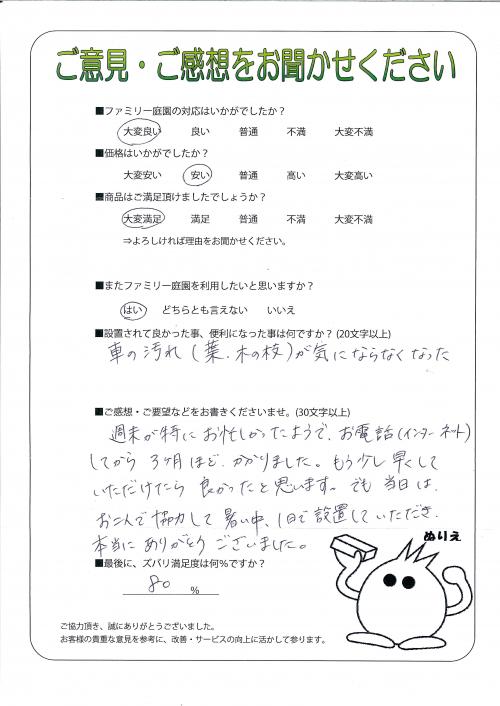 ご意見・ご感想をお聞かせください
■ファミリー庭園の対応はいかがでしたか？
大変良い 良い 普通 不満 大変不満
■価格はいかがでしたか？
大変安い 安い 普通 高い 大変高い
■商品はご満足頂けましたでしょうか？
大変満足 満足 普通 不満 大変不満
⇒よろしければ理由をお聞かせください。
■またファミリー庭園を利用したいと思いますか？
はい どちらとも言えない いいえ
■設置されて良かった事、便利になった事は何ですか？(20文字以上)
車の汚れ(葉、木の枝)が気にならなくなった
■ご感想・ご要望などをお書きくださいませ。(30文字以上)
週末が特にお忙しかったようで、お電話(インターネット)
してから3ヶ月ほどかかりました。もう少し早くして
いただけたら良かったと思います。でも当日は、
お二人で協力して暑い中、1日で設置していただき、
本当にありがとうございました。
ぬりえ
■最後に、ズバリ満足度は何％ですか？
80 ％
ご協力頂き、誠にありがとうございました。
お客様の貴重な意見を参考に、改善・サービスの向上に活かして参ります。